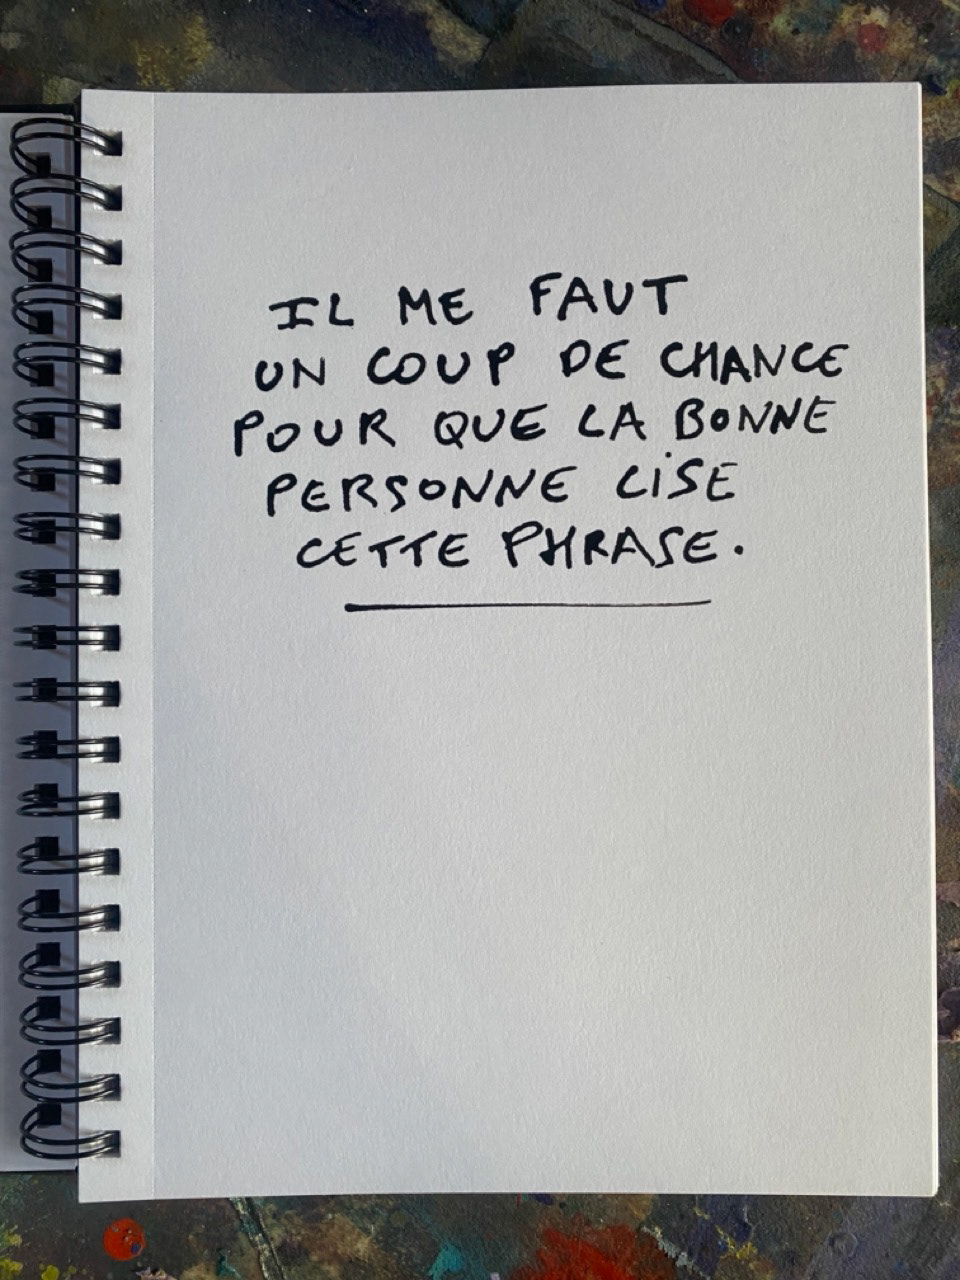 IL ME FAUT
UN COUP DE CHANCE
POUR QUE LA BONNE
PERSONNE LISE
CETTE PHRASE.